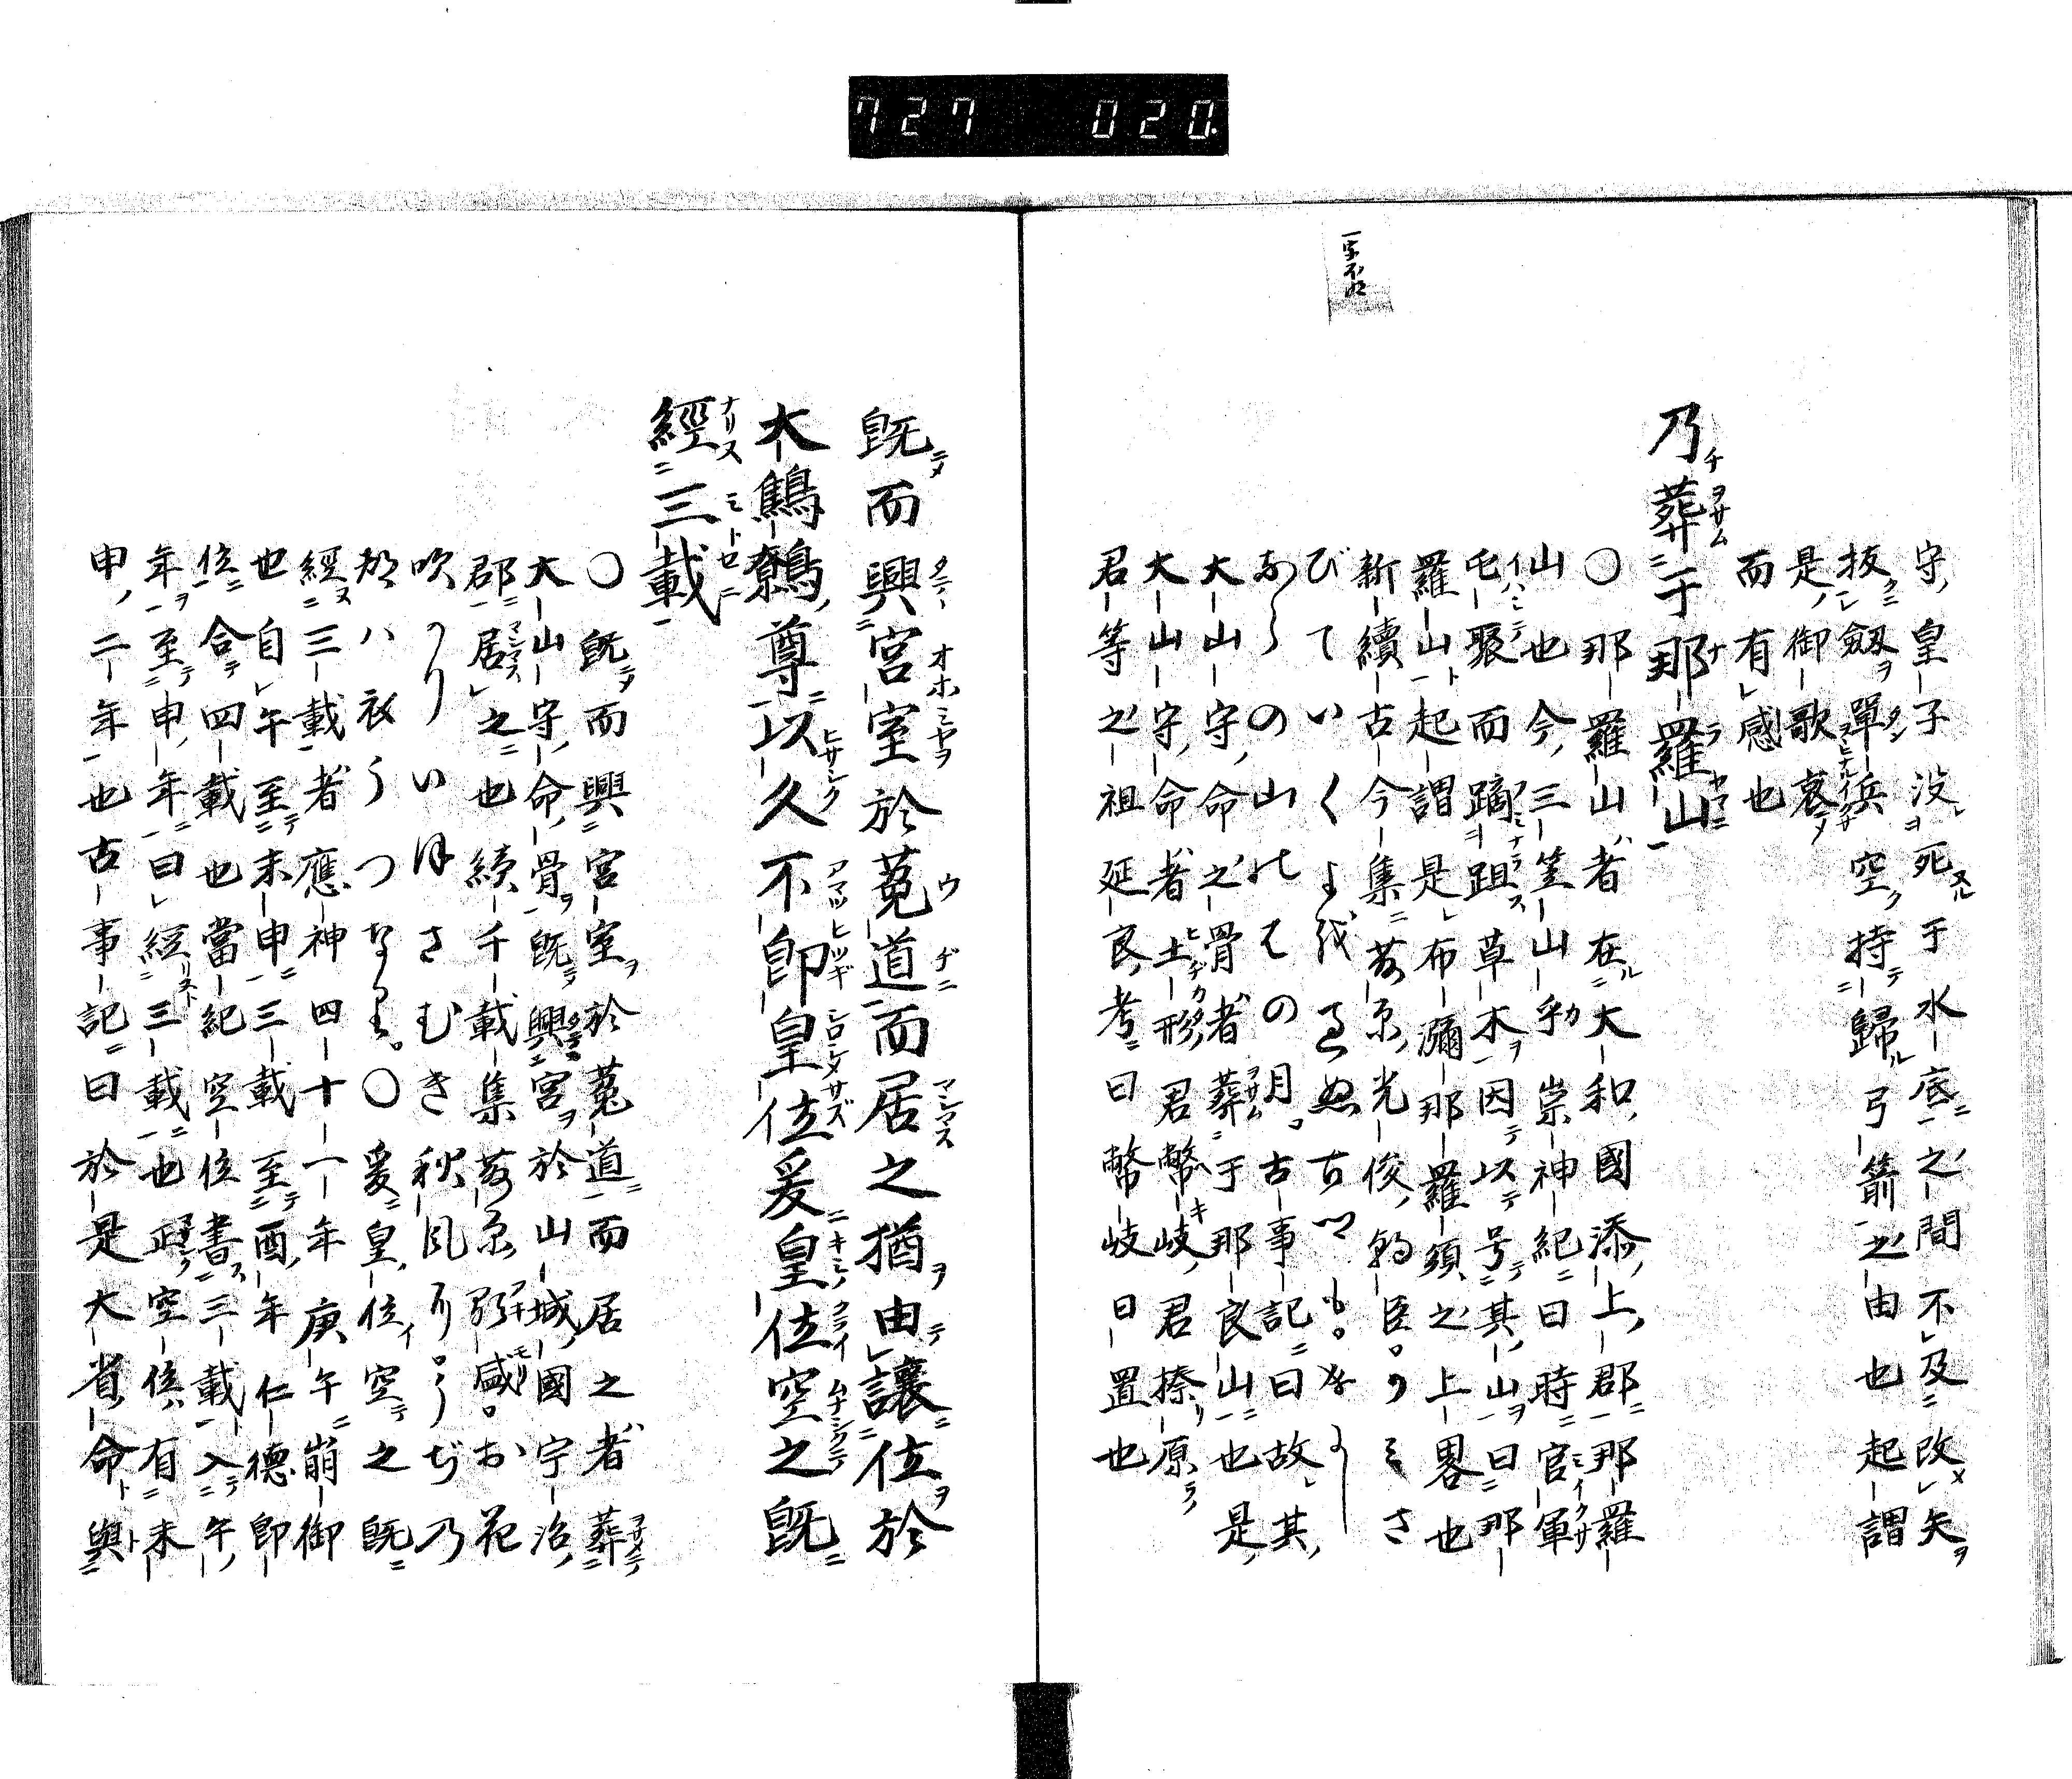 727 020
一字不明
守皇子没死于水底之間不及改矢
抜劔單兵空持歸弓箭之由也起謂
是御歌哀
而有感也
乃葬于那羅山
〇那羅山者在大和國添上郡那羅
山也今三笠山乎崇神紀曰時官軍
屯聚而蹢跙草木因以号其山曰那
羅山起謂是布瀰那羅須之上畧也
新續古今集藤原光俊朝臣。かミさ
びていくよ
のの月。古事記曰故其
大山守命之骨者葬于那良山也是
大山守命者土形君幣岐君捺原
君等之祖延良考曰幣岐日置也
既而興宮室於菟道而居之猶由讓位於
大鷦鷯尊以久不即皇位爰皇位空之既
經三載
〇既而興宮室於菟道而居之者葬
大山守命骨既興宮於山城國宇治
郡居之也續千載集藤原盛。お花
吹いほさむき秋風
ハ衣うつなり。〇爰皇位空之既
經三載者應神四十一年庚午崩御
也自午至未申三載至酉年仁德即
位合四載也當紀空位書三載入午
年至申年曰經三載也正空位有未
申二年也古事記曰於是大省命與